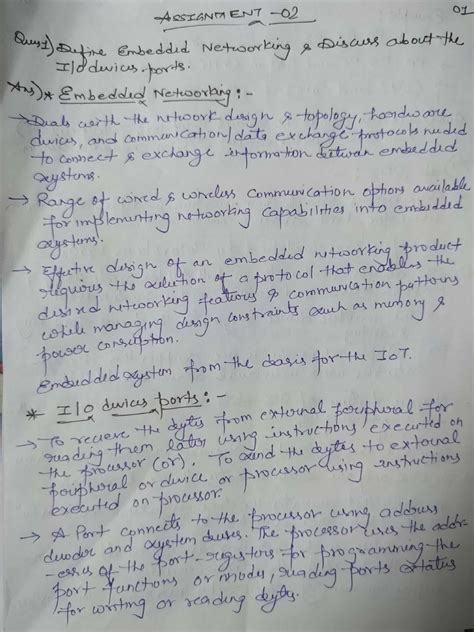 ASSIGNMENT-02
01
Ques1) Define Embedded Networking & Discuss about the
I/O devices ports.
Ans) * Embedded Networking:-
→ Deals with the network design & topology, hardware
devices, and communication/data exchange protocols needed
to connect & exchange information between embedded
systems.
→ Range of wired & wireless communication options available
for implementing networking capabilities into embedded
systems.
→ Effective design of an embedded networking product
requires the selection of a protocol that enables the
desired networking features & communication patterns
while managing design constraints such as memory &
power consumption.
Embedded system from the basis for the IoT.
* I/O devices ports:-
→ To receive the bytes from external peripheral for
reading them later using instructions executed on
the processor (or). To send the bytes to external
peripheral or device or processor using instructions
executed on processor.
→ A Port connects to the processor using address
decoder and system buses. The processor uses the addr-
-esses of the port-registers for programming the
port functions or modes, reading ports status
for writing or reading bytes.